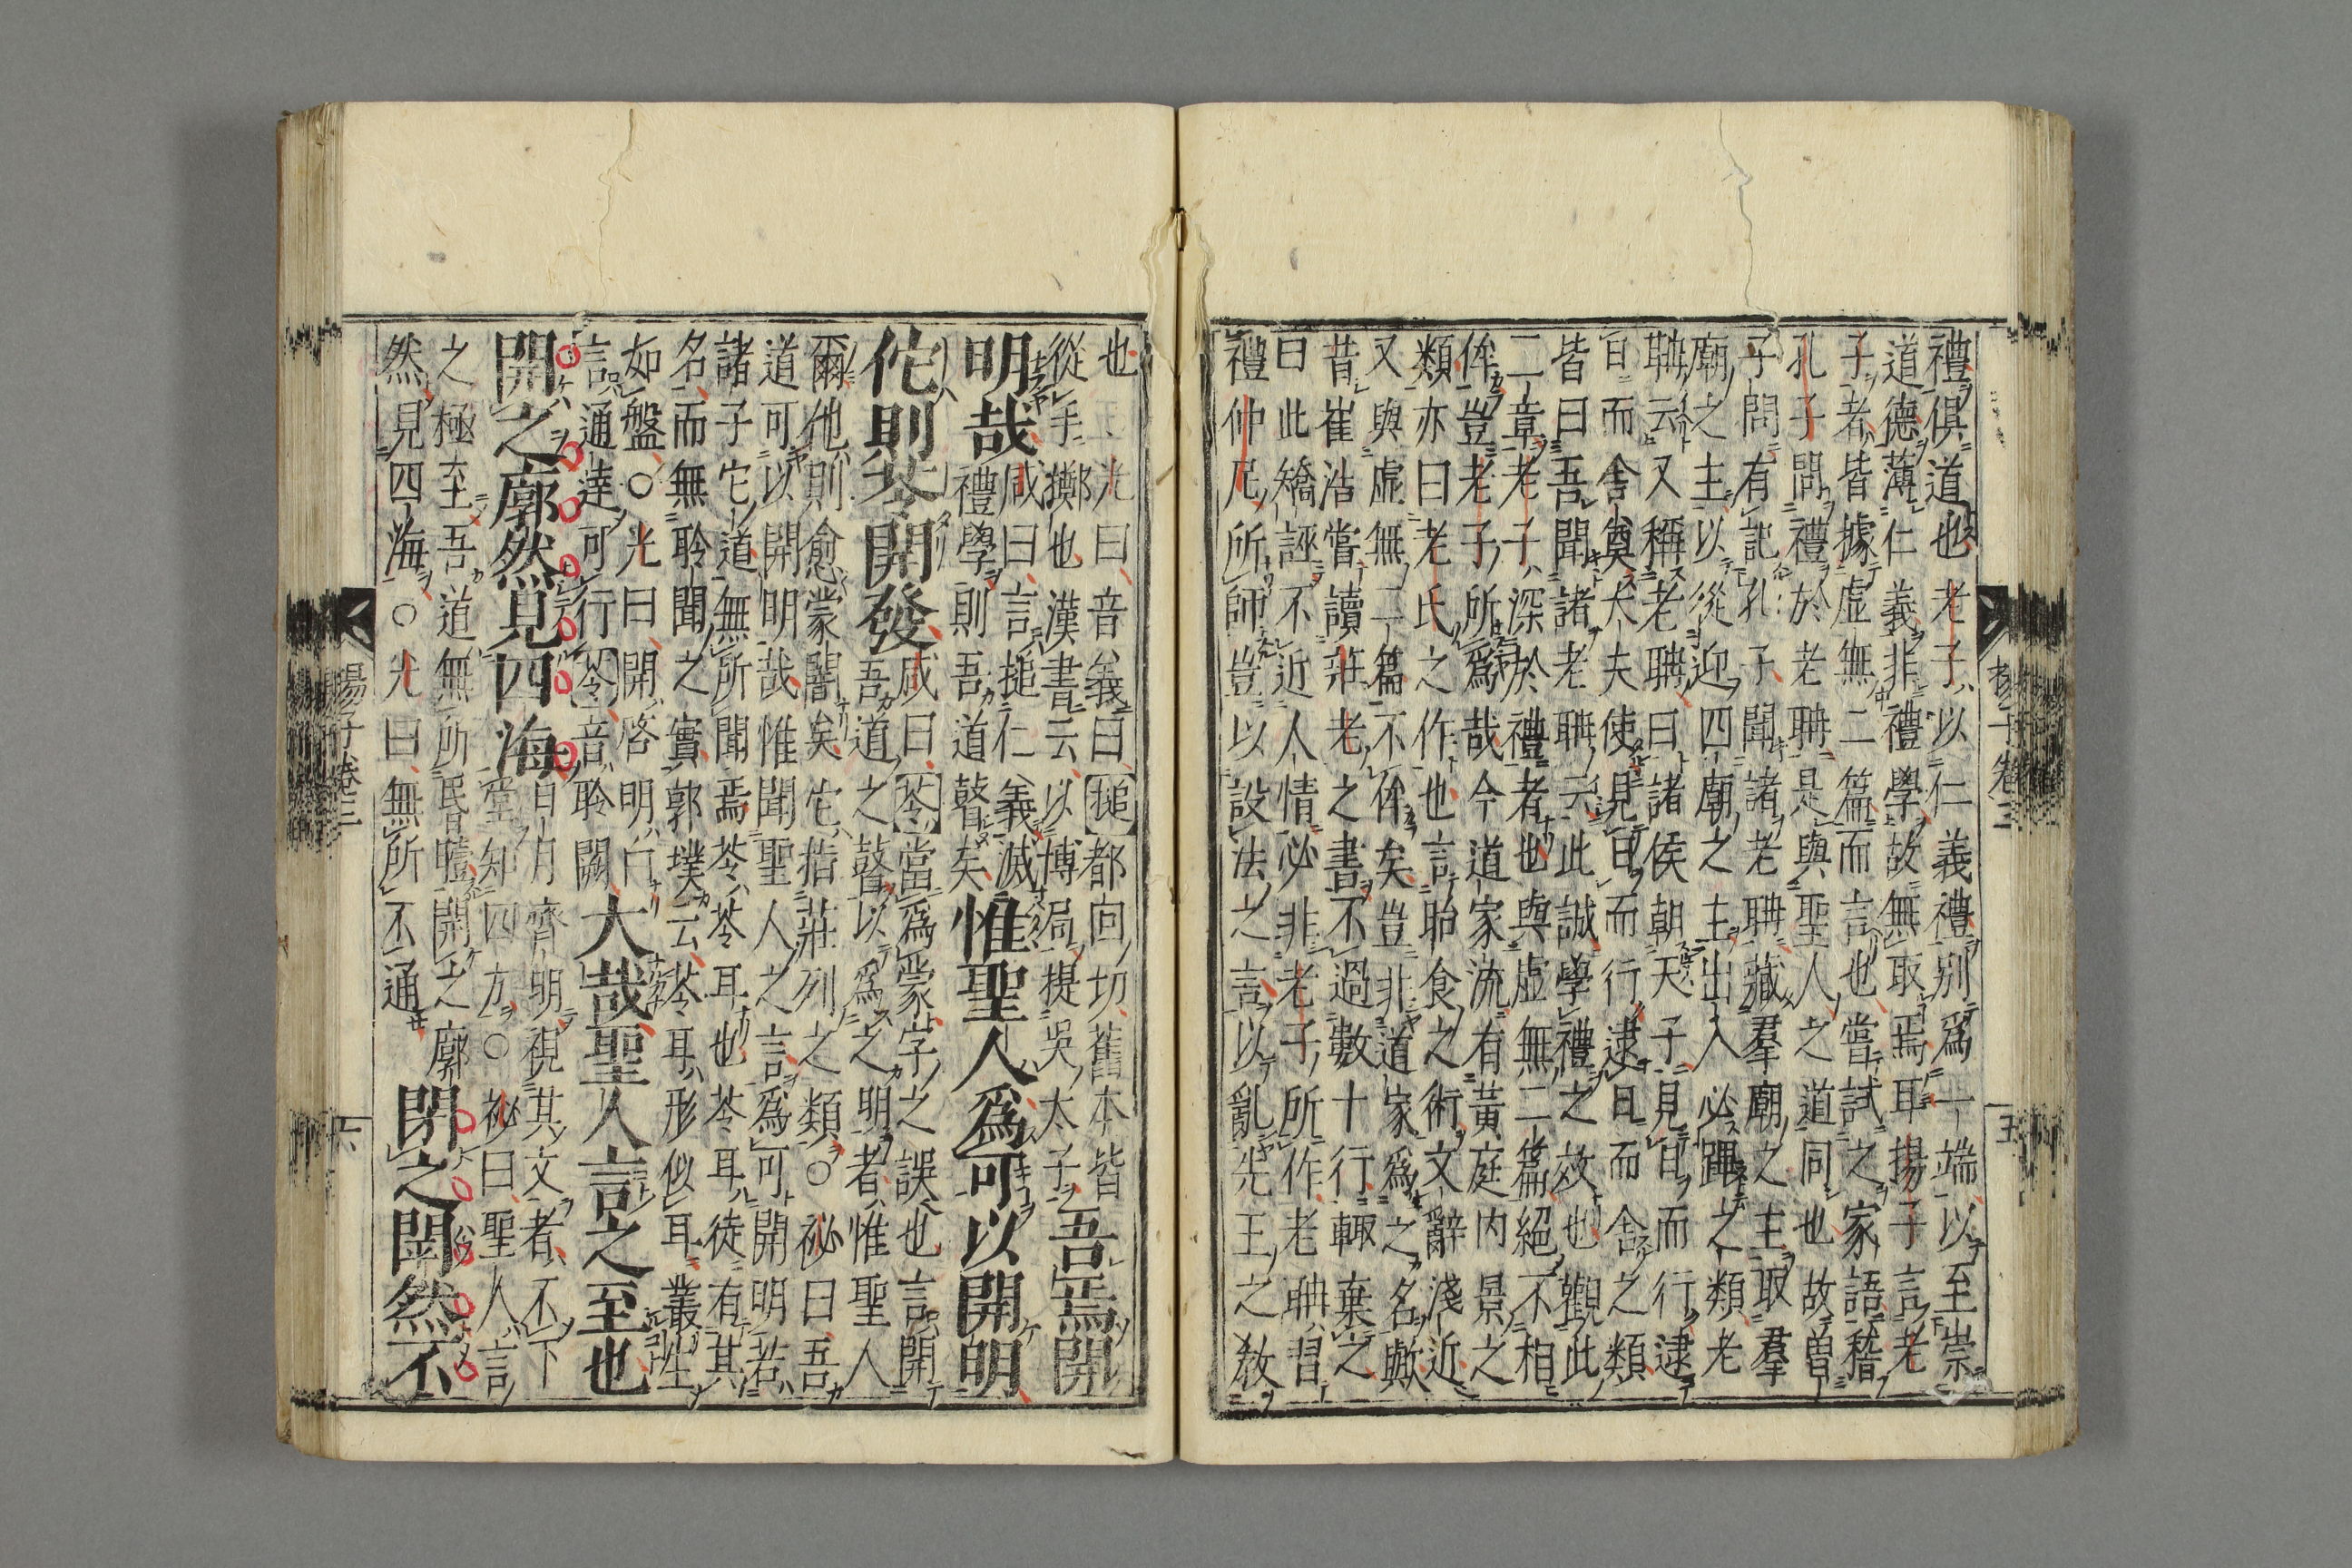 禮俱道也老子以仁義禮別爲一端以至崇
道德薄仁義非禮學故無取焉耳揚子言老
子者皆據虛無二篇而言也嘗試之家語稽
孔子問禮於老聃是與聖人之道同也故曽
子問有記孔子聞諸老聃藏羣廟之主取羣
廟之主以從迎四廟之主出入必蹕之類老
聃云又稱老聃曰諸侯朝天子見日而行逮
日而舍奠大夫使見日而行逮日而舍之類
皆曰吾聞諸老聃云此誠學禮之效也觀此
二章老子深於禮者也與虛無二篇絕不相
侔豈老子所爲哉今道家流有黃庭内景之
類亦曰老氏之作也言胎食之術文辭淺近
又與虛無二篇不侔矣豈非道家爲之名歟
昔崔浩嘗讀莊老之書不過數十行輒棄之
曰此矯誣不近人情必非老子所作老聃習
禮仲尼所師豈以設法之言以亂先王之教
揚子卷三 五
也 光曰音義曰搥都囘切舊本皆
從手擲也漢書云以博局提吳太子 吾焉開
明哉 咸曰言搥仁義滅
禮學則吾道瞽矣 惟聖人爲可以開明
佗則苓開發 咸曰苓當爲蒙字之誤也言開
吾道之瞽以爲之明者惟聖人
爾他則愈蒙闇矣它指莊列之類○祕曰吾
道可以開明哉惟聞聖人之言爲可開明若
諸子它道無所聞焉苓苓耳也苓耳徒有其
名而無聆聞之實郭璞云苓耳形似耳叢生
如盤○光曰開啓明白
言通達可行苓音聆闕 大哉聖人言之至也
開之廓然見四海 日月齊明視其文者不下
堂知四方○祕曰聖人言
之極至吾道無所昬曀開之廓
然見四海○光曰無所不通 閉之閛然不
揚子卷三 六